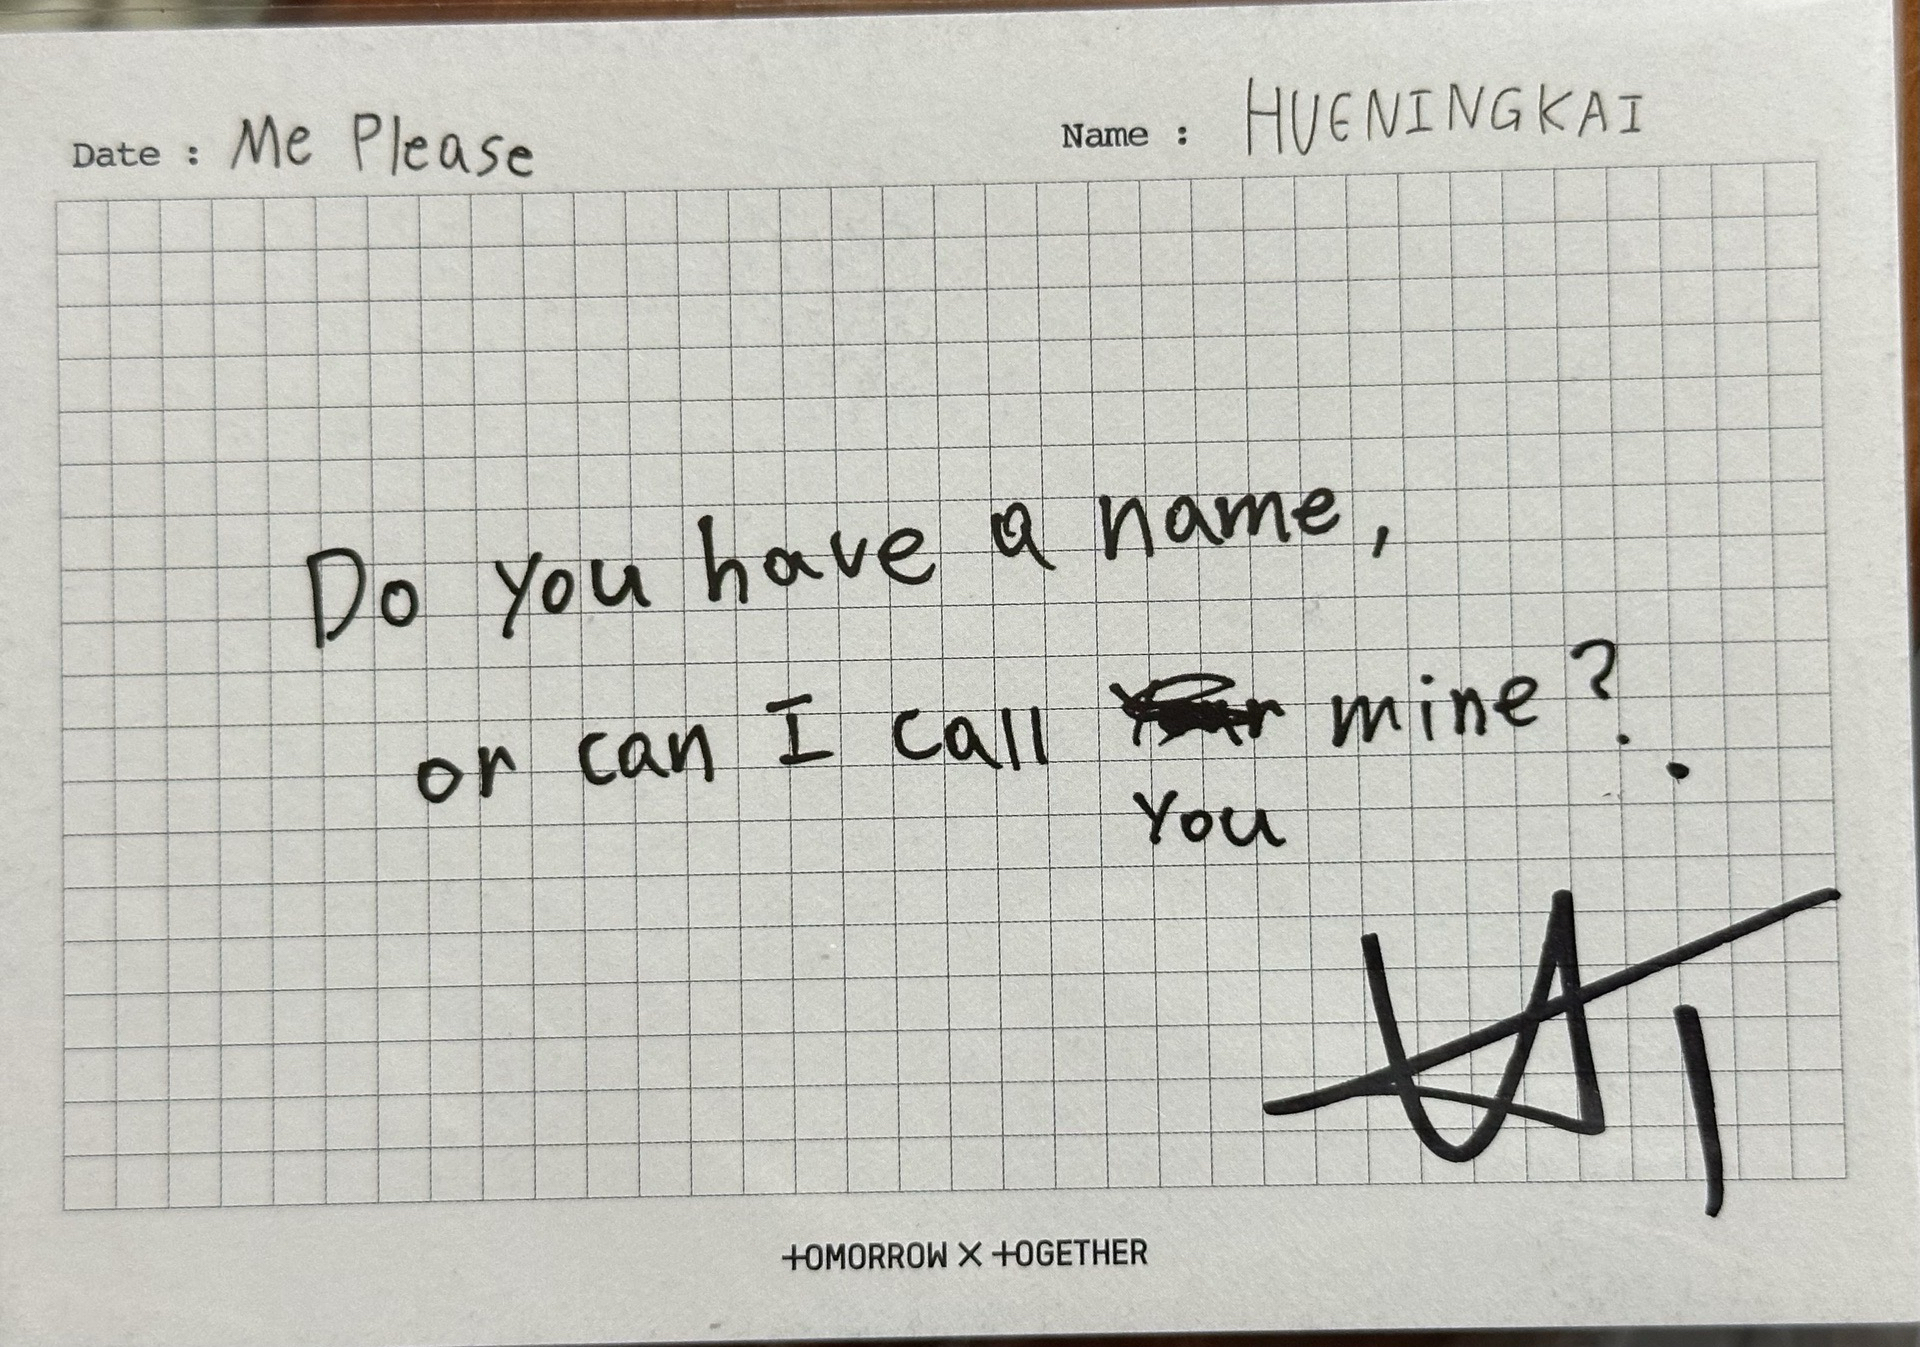 Date : Me Please
Name : HUENINGKAI
Do you have a name,
or can I call mine?
You
TOMORROW X TOGETHER